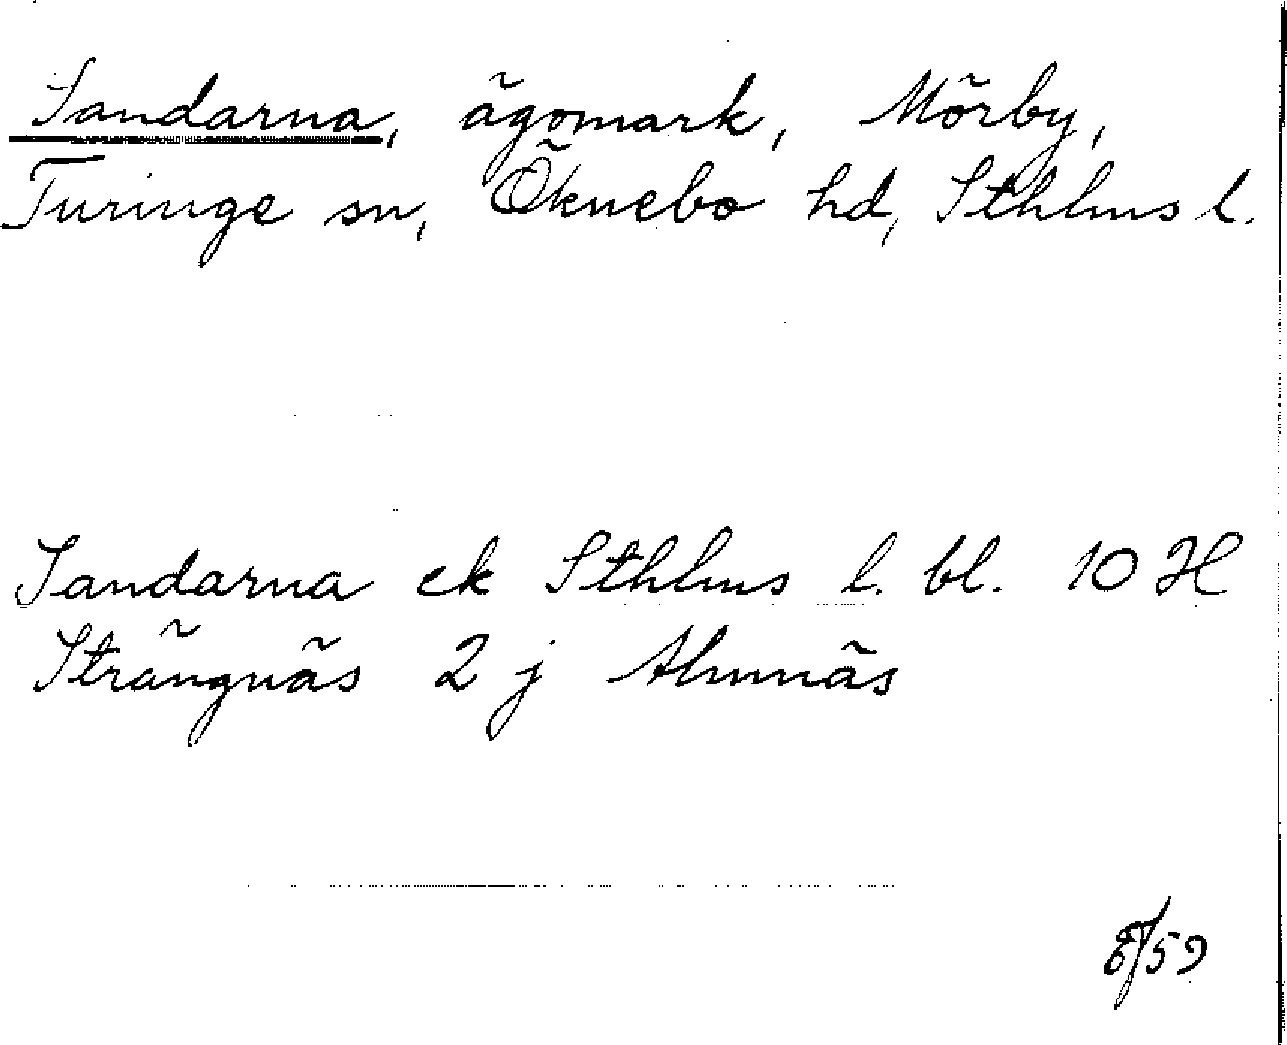 Sandarna, ägomark, Mörby,
Turinge sn, Öknebo hd, Sthlms l.
Sandarna ek Sthlms l. bl. 10 H
Strängnäs 2 j Almnäs
8/59